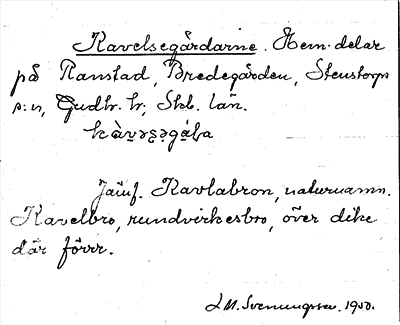 Kavelsegårdarne. Hem.delar
på Ranstad, Bredegården, Stenstorps
s:n, Gudh. hr; Skb. län.
Jämf. Kavlabron, naturnamn.
Kavelbro, rundvirkesbro, över dike
där förr.
J.M. Svenungsson. 1950.